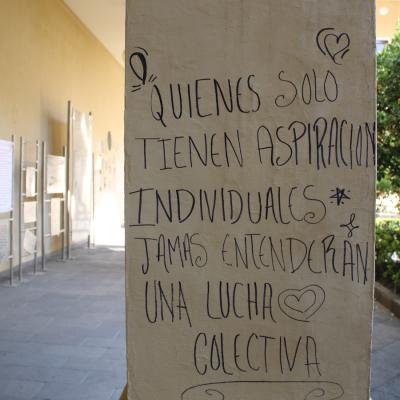 QUIENES SOLO
TIENEN ASPIRACION
INDIVIDUALES
JAMAS ENTENDERÁN
UNA LUCHA
COLECTIVA